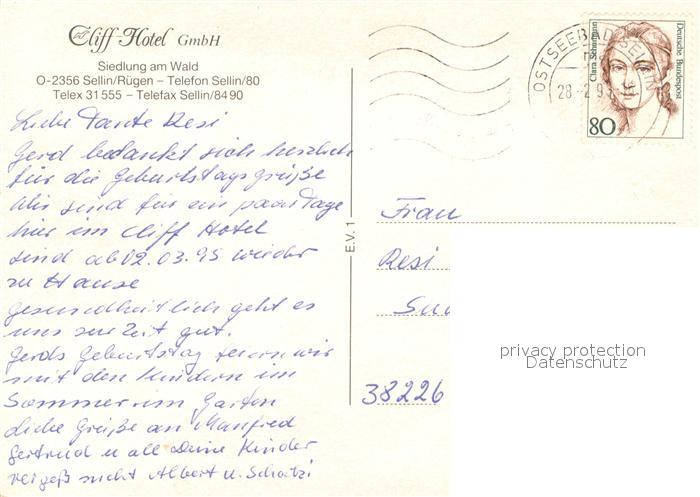 Cliff-Hotel GmbH
Siedlung am Wald
O-2356 Sellin/Rügen – Telefon Sellin/80
Telex 31 555 – Telefax Sellin/84 90
Liebe Tante Resi
Gerd bedankt sich herzlich
für die Geburtstagsgrüße
Wir sind für ein paar Tage
hier im Cliff Hotel
sind ab 02.03.95 wieder
zu Hause
gesundheitlich geht es
uns zur Zeit gut.
Gerds Geburtstag feiern wir
mit den Kindern im
Sommer im Garten
Liebe Grüße an Manfred
Gertrud u all Deine Kinder
vergeß nicht Albert u. Schatzi
E.V. 1
OSTSEEBAD SELLIN
28.-2.9
Clara Schumann
Deutsche Bundespost
80
Frau
Resi
38226
privacy protection
Datenschutz